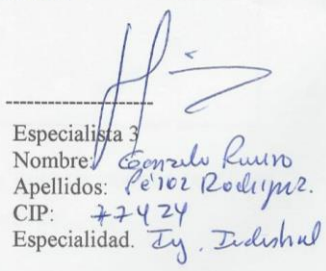 Especialista 3
Nombre: Gonzalo
Apellidos: Pérez Rodríguez.
CIP: 77424
Especialidad. Ing. Industrial